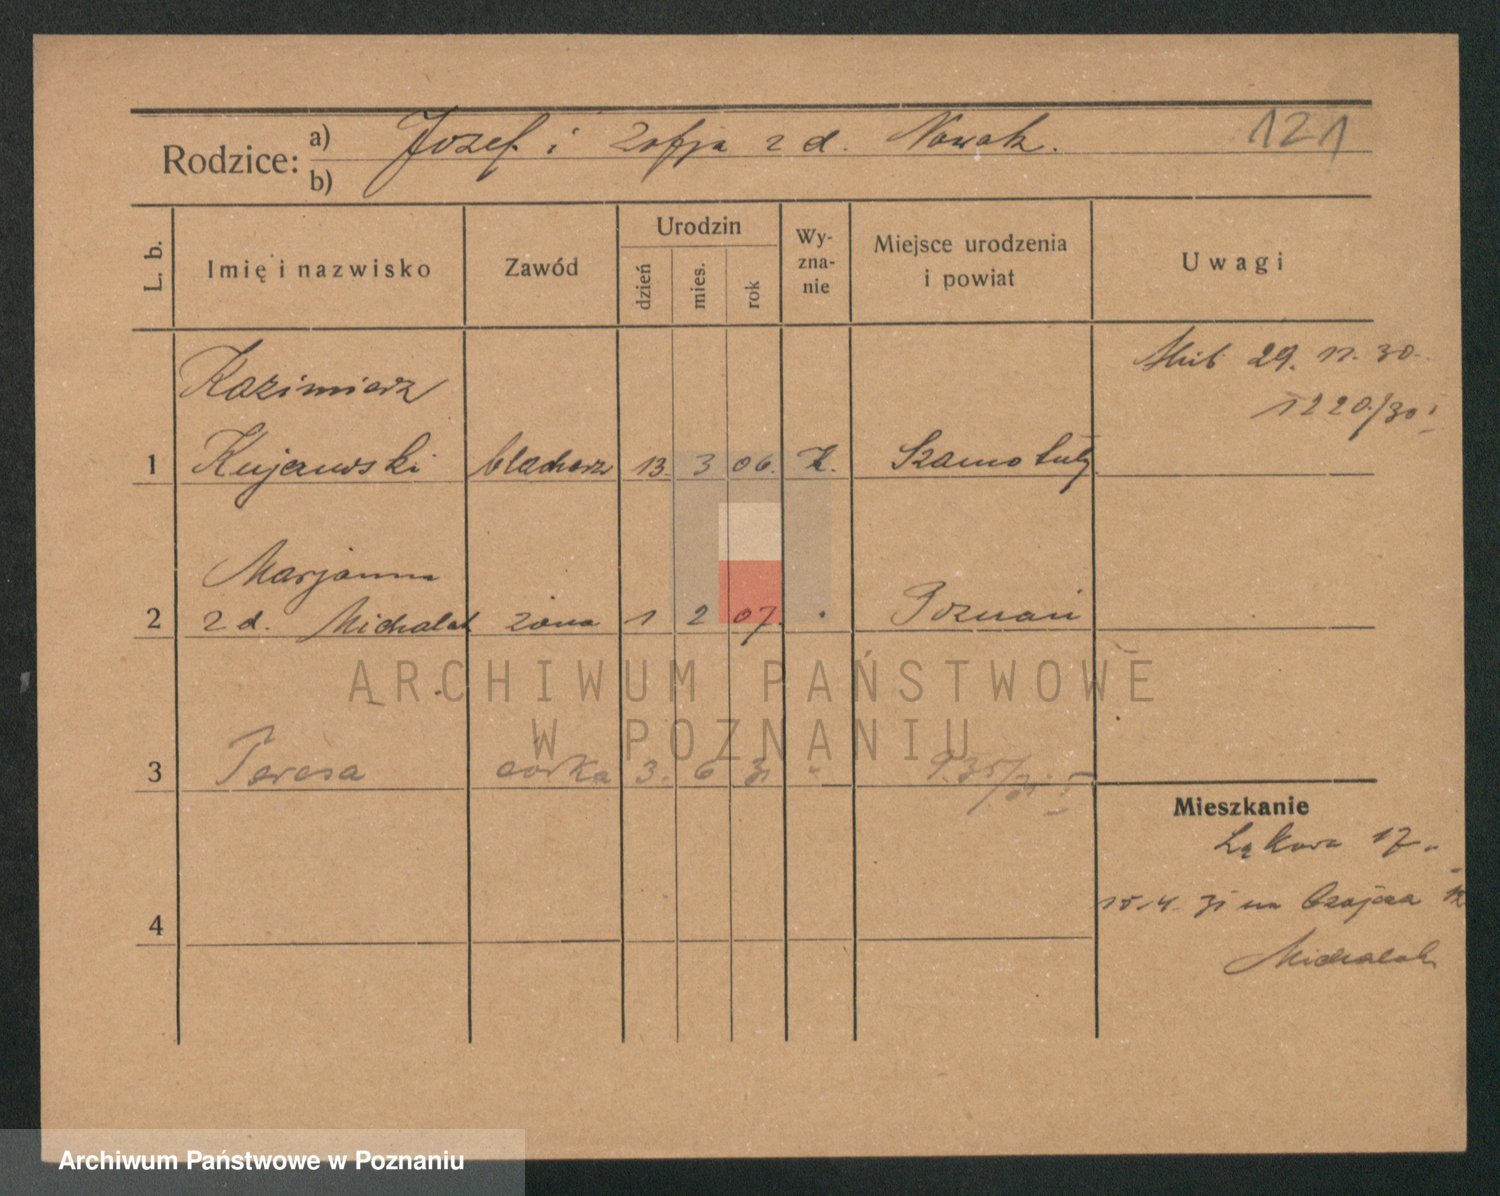 Rodzice: a) Jozef i Zofja z d. Nowak. 121
b)
L. b.
Imię i nazwisko
Zawód
Urodzin
dzień
mies.
rok
Wy-
zna-
nie
Miejsce urodzenia
i powiat
Uwagi
Kazimierz
ślub 29. 11. 30.
1220/30 I
1 Kujawski blacharz 13. 3 06. K. Szamotuły
Marjanna
2 z d. Michalak żona 1 2 07. " Poznań
3 Teresa córka 3. 6 31 " 935/31. I
Mieszkanie
Łąkowa 17.
15.4. 31 na
4
Michalak
ARCHIWUM PAŃSTWOWE
W POZNANIU
Archiwum Państwowe w Poznaniu